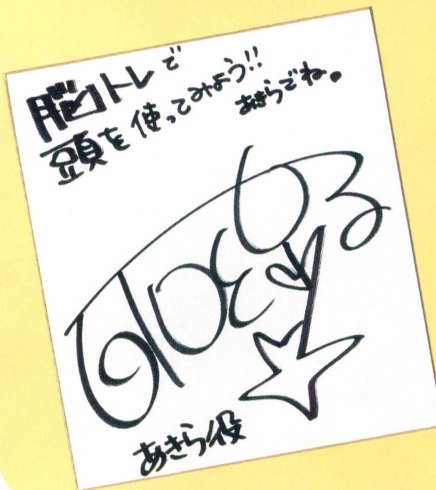 脳トレで
頭を使ってみよう!!
あきらでね。
あきら役